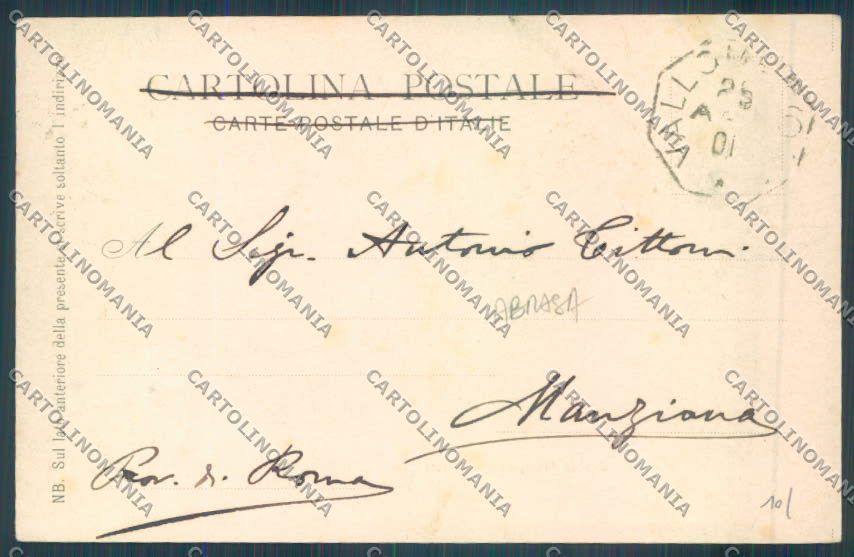 CARTOLINA POSTALE
CARTE POSTALE D'ITALIE
25
A
01
Al Sigr. Antonio Tittoni
ABRASA
Manziana
Prov. di Roma
10/
NB. Sul lato anteriore della presente si scrive soltanto l'indirizzo
CARTOLINOMANIA